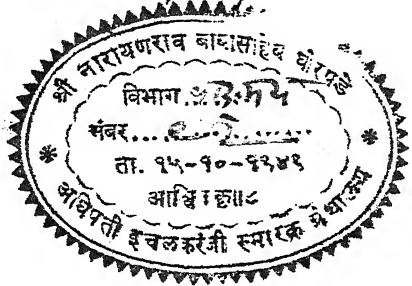 श्री नारायणराव बाबासाहेब घोरपडे
विभाग
नंबर
ता. १५-१०-१९४१
अधिपती इचलकरंजी स्मारक ग्रंथालय